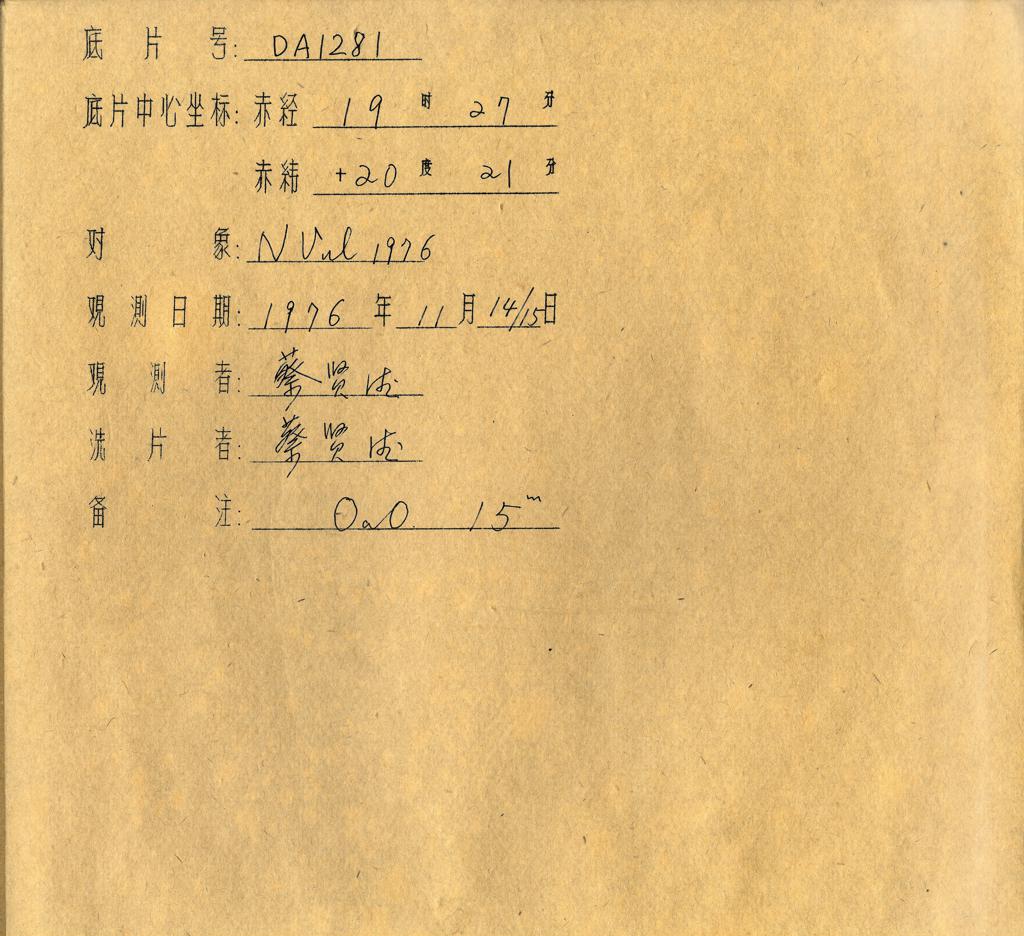 底片号: DA1281
底片中心坐标: 赤经 19时 27分
赤纬 +20度 21分
对象: N Vul 1976
观测日期: 1976年 11月 14/15日
观测者: 蔡贤德
洗片者: 蔡贤德
备注: OaO 15ᵐ